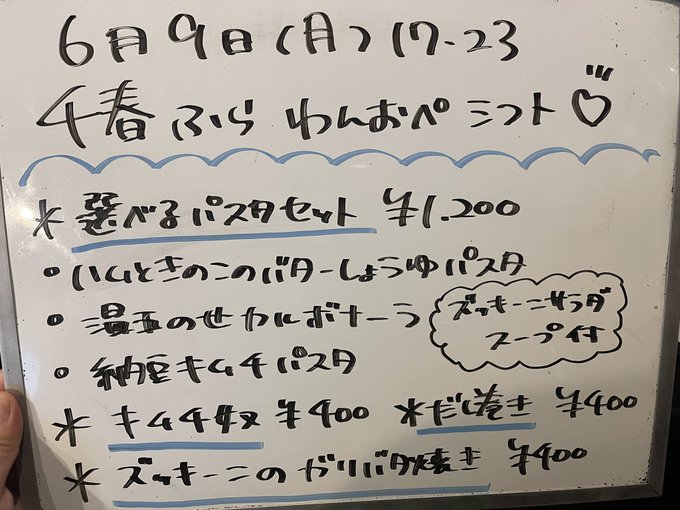 6月9日(月)17-23
千春ふらわんおぺシフト♡
* 選べるパスタセット ¥1.200
• ハムときのこのバターしょうゆパスタ
• 温玉のせカルボナーラ
ズッキーニサラダ
スープ付
• 納豆キムチパスタ
* キムチ奴 ¥400 *だし巻き ¥400
* ズッキーニのガリバタ焼き ¥400